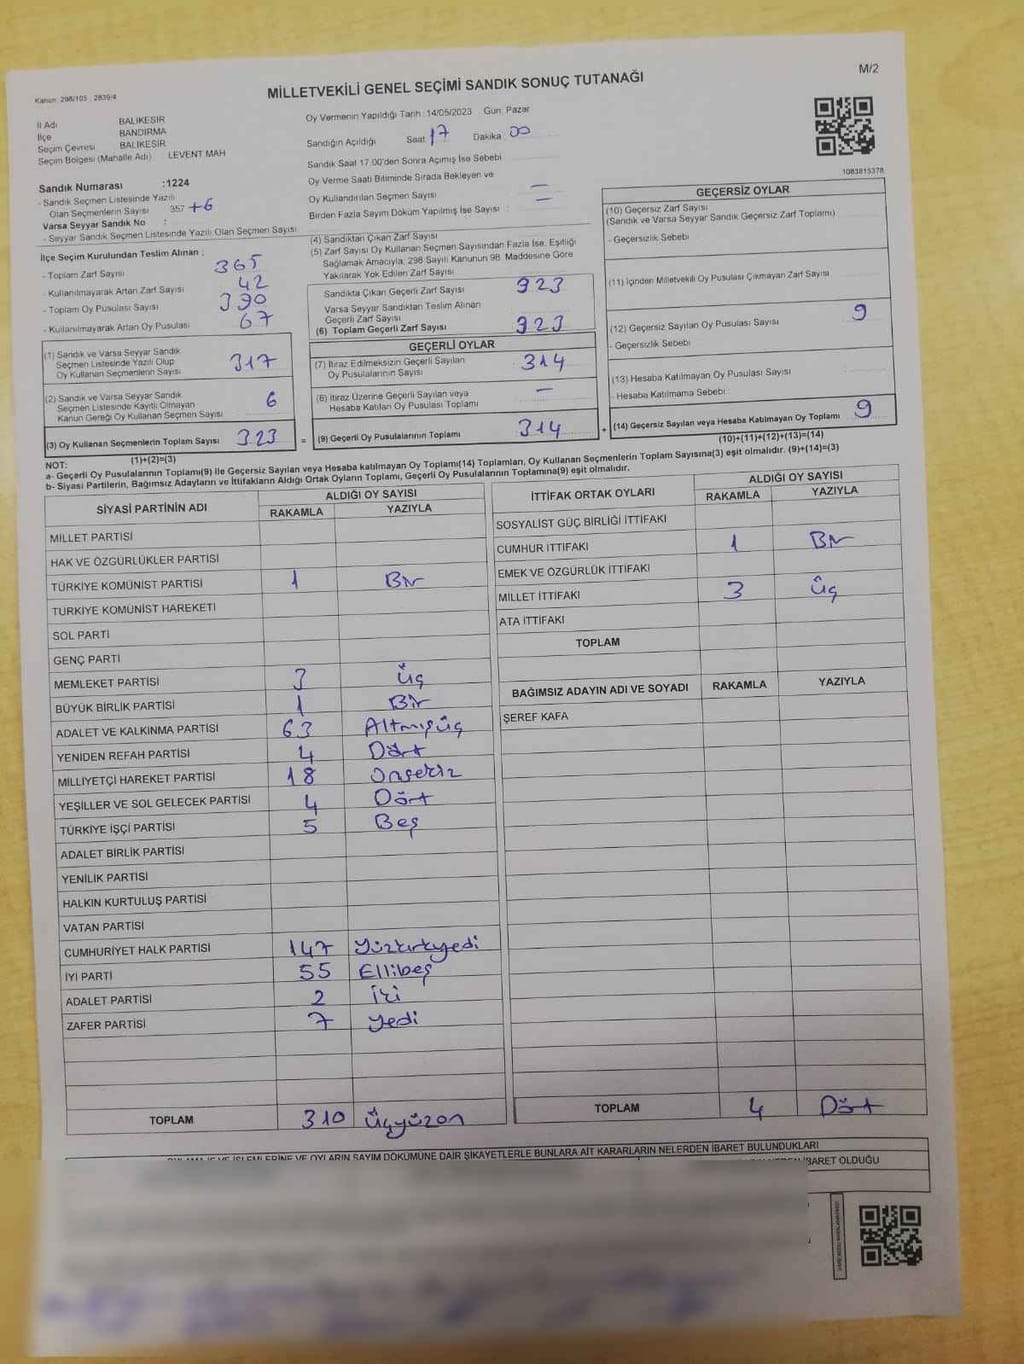 M/2
Kanun: 298/105 ; 2839/4
MİLLETVEKİLİ GENEL SEÇİMİ SANDIK SONUÇ TUTANAĞI
İl Adı BALIKESİR
İlçe BANDIRMA
Seçim Çevresi BALIKESİR
Seçim Bölgesi (Mahalle Adı) LEVENT MAH
Oy Vermenin Yapıldığı Tarih : 14/05/2023 Gün: Pazar
Sandığın Açıldığı Saat 17 Dakika 00
Sandık Saat 17.00'den Sonra Açılmış İse Sebebi
Oy Verme Saati Bitiminde Sırada Bekleyen ve
Oy Kullandırılan Seçmen Sayısı : —
Birden Fazla Sayım Döküm Yapılmış İse Sayısı : —
1083815378
Sandık Numarası :1224
- Sandık Seçmen Listesinde Yazılı
Olan Seçmenlerin Sayısı 357 +6
Varsa Seyyar Sandık No :
- Seyyar Sandık Seçmen Listesinde Yazılı Olan Seçmen Sayısı
İlçe Seçim Kurulundan Teslim Alınan :
- Toplam Zarf Sayısı 365
- Kullanılmayarak Artan Zarf Sayısı 42
- Toplam Oy Pusulası Sayısı 390
- Kullanılmayarak Artan Oy Pusulası 67
(1) Sandık ve Varsa Seyyar Sandık
Seçmen Listesinde Yazılı Olup
Oy Kullanan Seçmenlerin Sayısı 317
(2) Sandık ve Varsa Seyyar Sandık
Seçmen Listesinde Kayıtlı Olmayan
Kanun Gereği Oy Kullanan Seçmen Sayısı 6
(3) Oy Kullanan Seçmenlerin Toplam Sayısı 323 =
(1)+(2)=(3)
(4) Sandıktan Çıkan Zarf Sayısı
(5) Zarf Sayısı Oy Kullanan Seçmen Sayısından Fazla İse, Eşitliği
Sağlamak Amacıyla; 298 Sayılı Kanunun 98. Maddesine Göre
Yakılarak Yok Edilen Zarf Sayısı
Sandıkta Çıkan Geçerli Zarf Sayısı 323
Varsa Seyyar Sandıktan Teslim Alınan
Geçerli Zarf Sayısı
(6) Toplam Geçerli Zarf Sayısı 323
GEÇERLİ OYLAR
(7) İtiraz Edilmeksizin Geçerli Sayılan
Oy Pusulalarının Sayısı 314
(8) İtiraz Üzerine Geçerli Sayılan veya
Hesaba Katılan Oy Pusulası Toplamı —
(9) Geçerli Oy Pusulalarının Toplamı 314 +
GEÇERSİZ OYLAR
(10) Geçersiz Zarf Sayısı
(Sandık ve Varsa Seyyar Sandık Geçersiz Zarf Toplamı)
- Geçersizlik Sebebi
(11) İçinden Milletvekili Oy Pusulası Çıkmayan Zarf Sayısı
(12) Geçersiz Sayılan Oy Pusulası Sayısı 9
- Geçersizlik Sebebi
(13) Hesaba Katılmayan Oy Pusulası Sayısı
- Hesaba Katılmama Sebebi
(14) Geçersiz Sayılan veya Hesaba Katılmayan Oy Toplamı 9
(10)+(11)+(12)+(13)=(14)
NOT:
a- Geçerli Oy Pusulalarının Toplamı(9) ile Geçersiz Sayılan veya Hesaba katılmayan Oy Toplamı(14) Toplamları, Oy Kullanan Seçmenlerin Toplam Sayısına(3) eşit olmalıdır. (9)+(14)=(3)
b- Siyasi Partilerin, Bağımsız Adayların ve İttifakların Aldığı Ortak Oyların Toplamı, Geçerli Oy Pusulalarının Toplamına(9) eşit olmalıdır.
SİYASİ PARTİNİN ADI ALDIĞI OY SAYISI
RAKAMLA YAZIYLA
MİLLET PARTİSİ
HAK VE ÖZGÜRLÜKLER PARTİSİ
TÜRKİYE KOMÜNİST PARTİSİ 1 Bir
TÜRKİYE KOMÜNİST HAREKETİ
SOL PARTİ
GENÇ PARTİ
MEMLEKET PARTİSİ 3 Üç
BÜYÜK BİRLİK PARTİSİ 1 Bir
ADALET VE KALKINMA PARTİSİ 63 Altmışüç
YENİDEN REFAH PARTİSİ 4 Dört
MİLLİYETÇİ HAREKET PARTİSİ 18 Onsekiz
YEŞİLLER VE SOL GELECEK PARTİSİ 4 Dört
TÜRKİYE İŞÇİ PARTİSİ 5 Beş
ADALET BİRLİK PARTİSİ
YENİLİK PARTİSİ
HALKIN KURTULUŞ PARTİSİ
VATAN PARTİSİ
CUMHURİYET HALK PARTİSİ 147 Yüzkırkyedi
İYİ PARTİ 55 Ellibeş
ADALET PARTİSİ 2 İki
ZAFER PARTİSİ 7 Yedi
TOPLAM 310 Üçyüzon
İTTİFAK ORTAK OYLARI ALDIĞI OY SAYISI
RAKAMLA YAZIYLA
SOSYALİST GÜÇ BİRLİĞİ İTTİFAKI
CUMHUR İTTİFAKI 1 Bir
EMEK VE ÖZGÜRLÜK İTTİFAKI
MİLLET İTTİFAKI 3 Üç
ATA İTTİFAKI
TOPLAM
BAĞIMSIZ ADAYIN ADI VE SOYADI RAKAMLA YAZIYLA
ŞEREF KAFA
TOPLAM 4 Dört
OYLAMA İŞ VE İŞLEMLERİNE VE OYLARIN SAYIM DÖKÜMÜNE DAİR ŞİKAYETLERLE BUNLARA AİT KARARLARIN NELERDEN İBARET BULUNDUKLARI
İBARET OLDUĞU